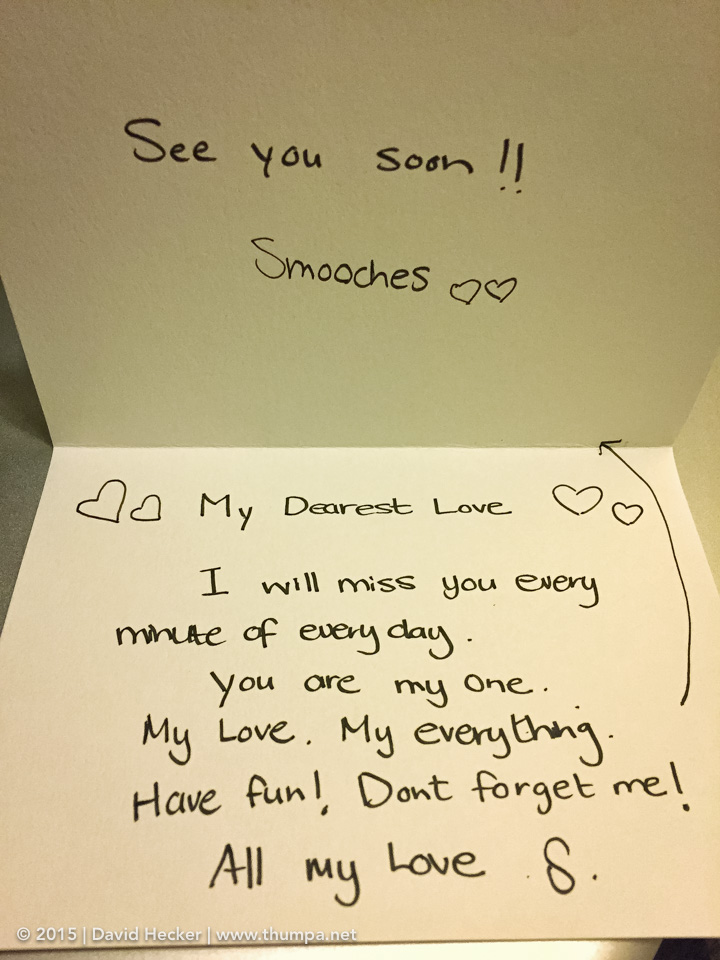 See you soon!!
Smooches ♡♡
♡♡ My Dearest Love ♡♡
I will miss you every
minute of every day.
You are my one.
My Love. My everything.
Have fun! Dont forget me!
All my Love S.
© 2015 | David Hecker | www.thumpa.net